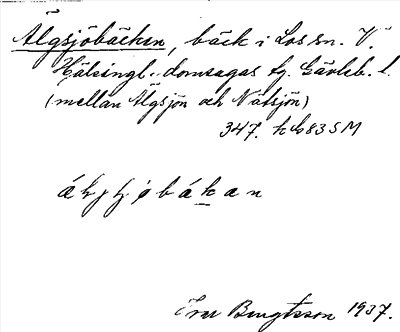 Älgsjöbäcken, bäck i Los sn. V.
Hälsingl. domsagas tg. Gävleb. l.
(mellan Älgsjön och Nätsjön)
347. kb 83 S M
Ivar Bengtsson 1937.